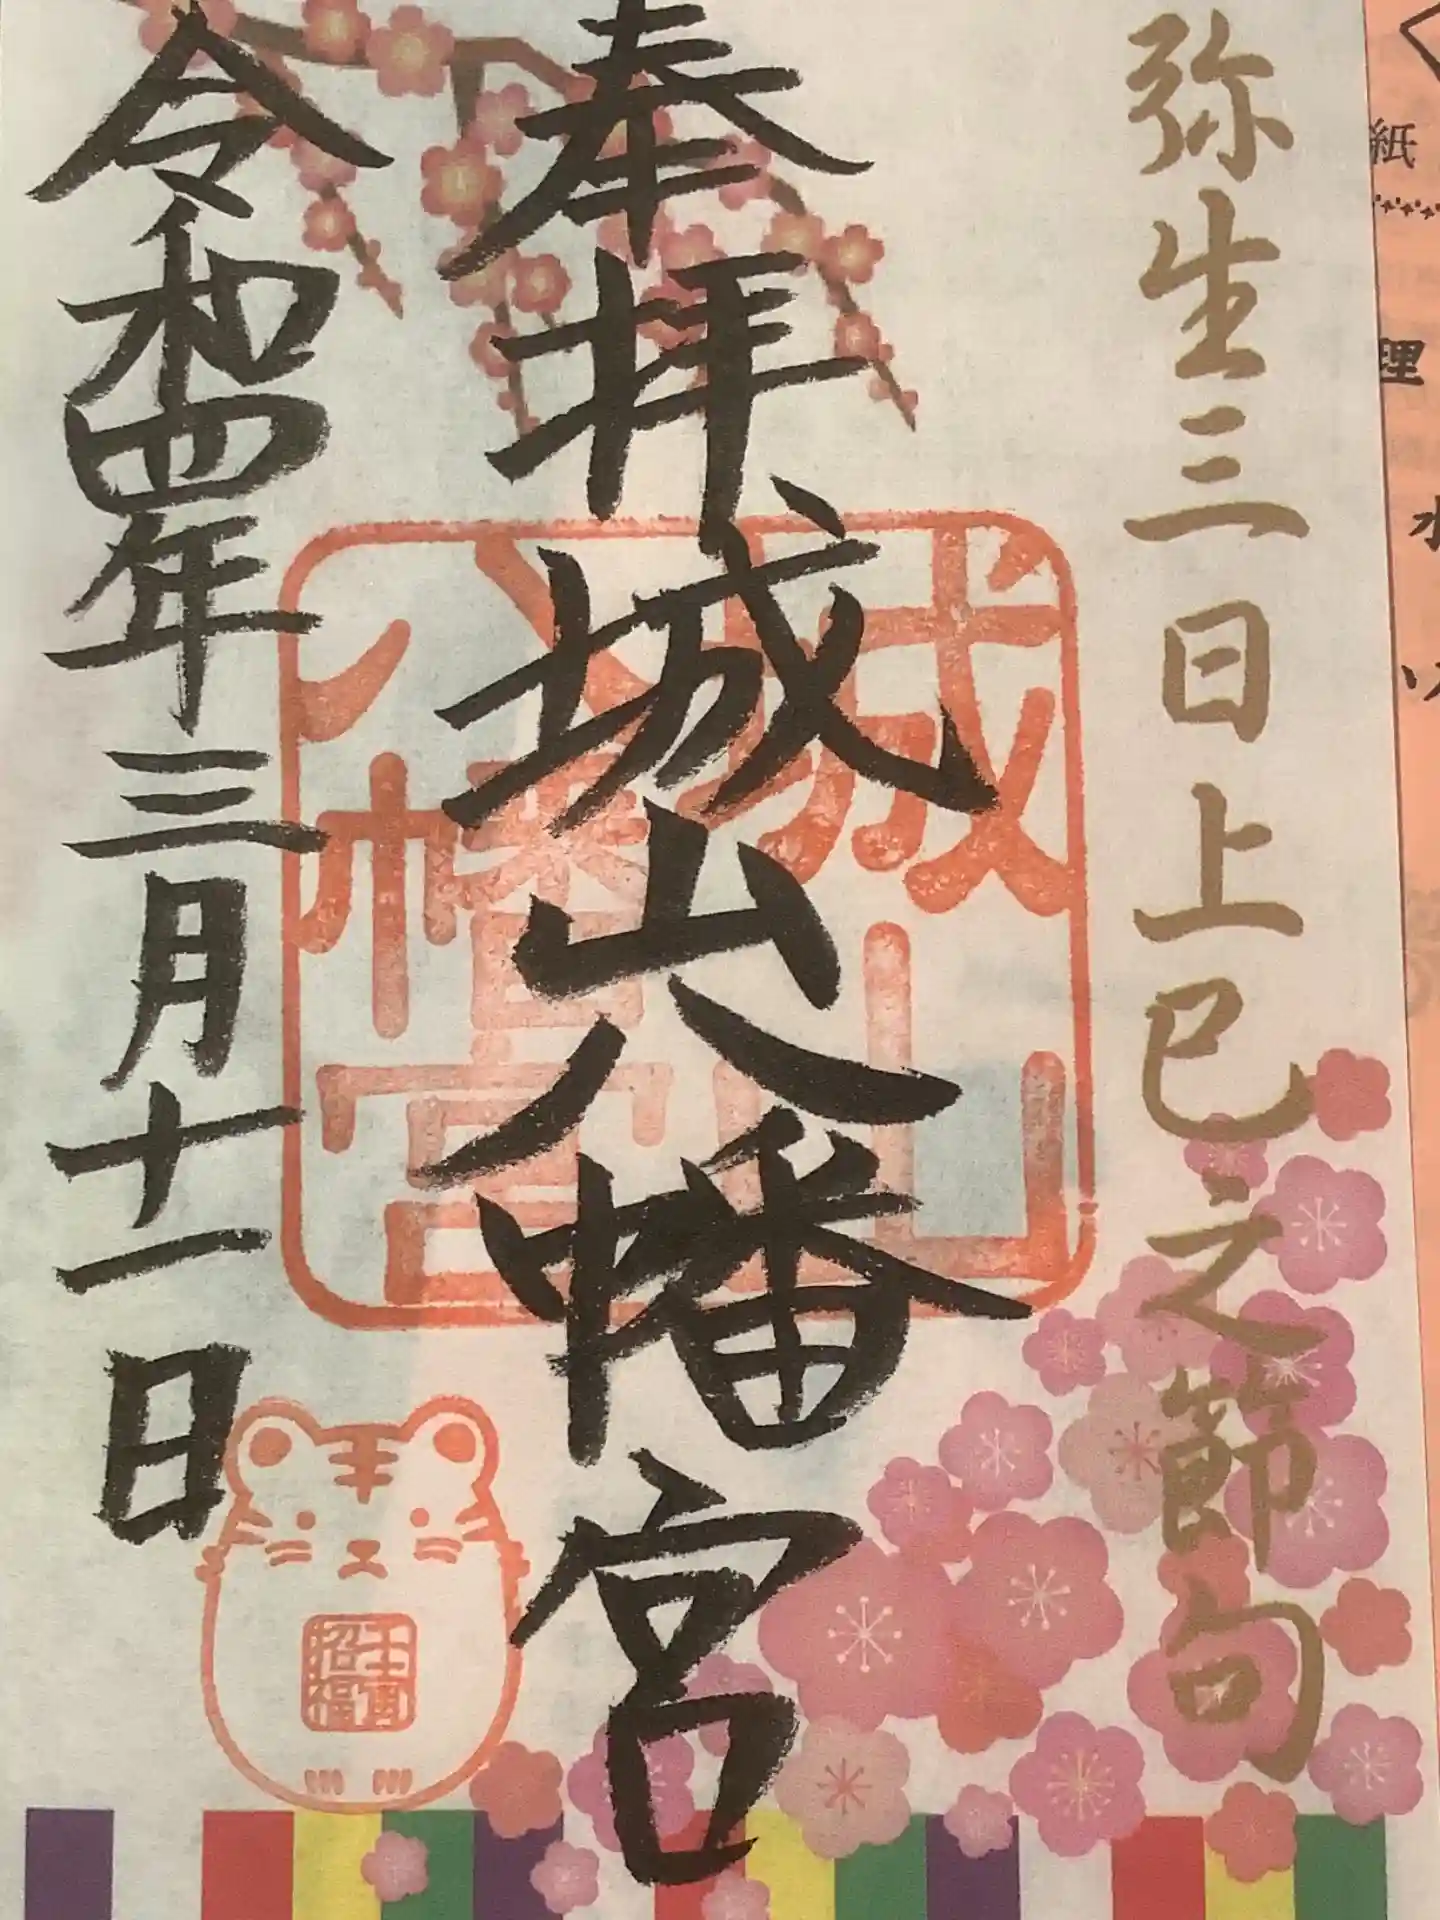 弥生三日上巳之節句
奉拝
城山八幡宮
令和四年三月十一日
城山
八幡宮
壬寅
招福
紙
理
水